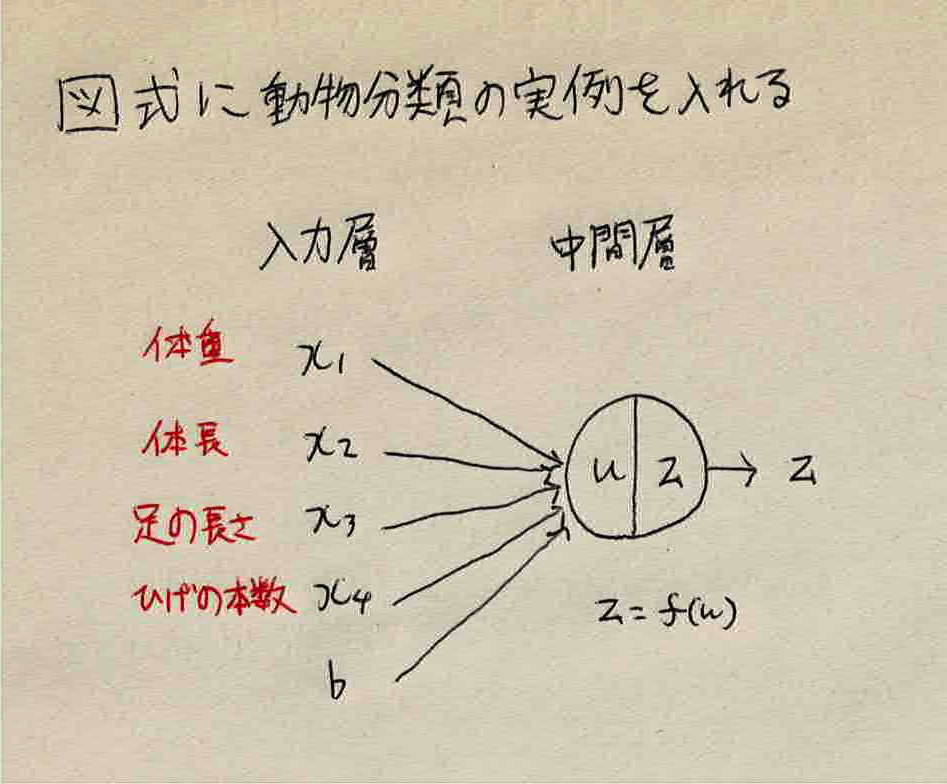 図式に動物分類の実例を入れる
入力層 中間層
体重 x1
体長 x2
足の長さ x3
ひげの本数 x4
b
u z → z
z = f(u)